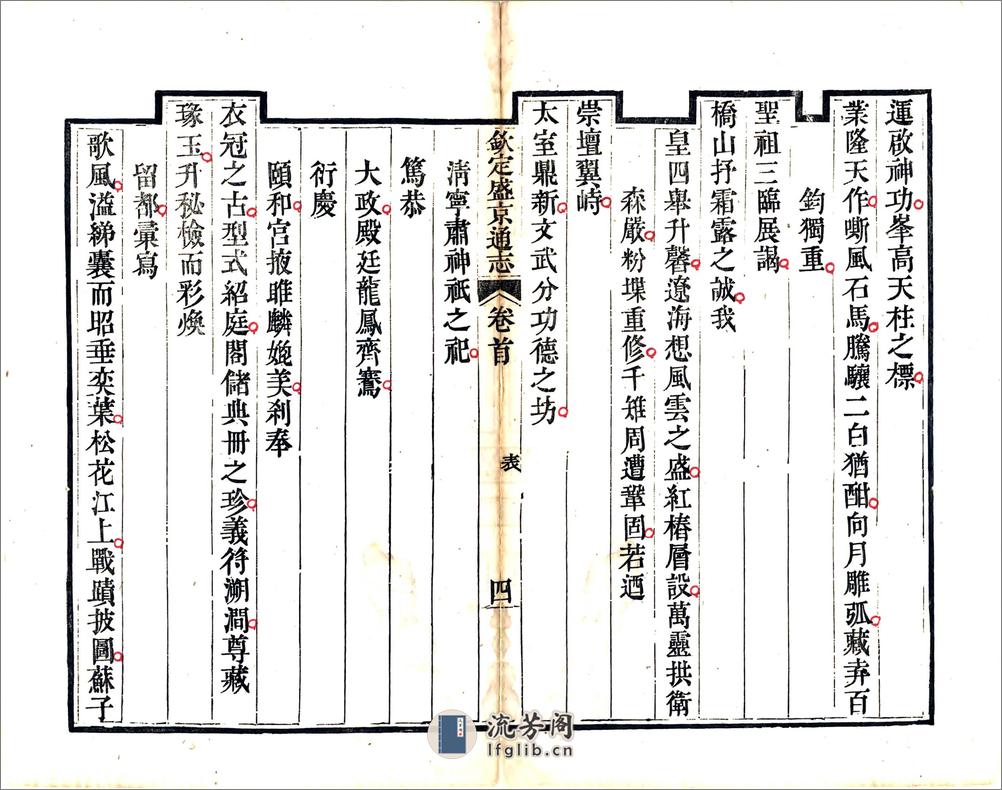 運啟神功峯高天柱之標
業隆天作嘶風石馬騰驤二白猶酣向月雕弧藏弆百
鈞獨重
聖祖三臨展謁
橋山抒霜露之誠我
皇四舉升馨遼海想風雲之盛紅樁層設萬靈拱衛
森嚴粉堞重修千雉周遭鞏固若迺
崇壇翼峙
太室鼎新文武分功德之坊
欽定盛京通志 卷首 表 四
清寧肅神祇之祀
篤恭
大政殿廷龍鳳齊騫
衍慶
頤和宮掖雎麟媲美剎奉
衣冠之古型式紹庭閣儲典冊之珍義符溯澗尊藏
瑑玉升秘檢而彩煥
留都彚寫
歌風溢綈囊而昭垂奕葉松花江上戰蹟披圖蘇子
流芳阁
lfglib.cn